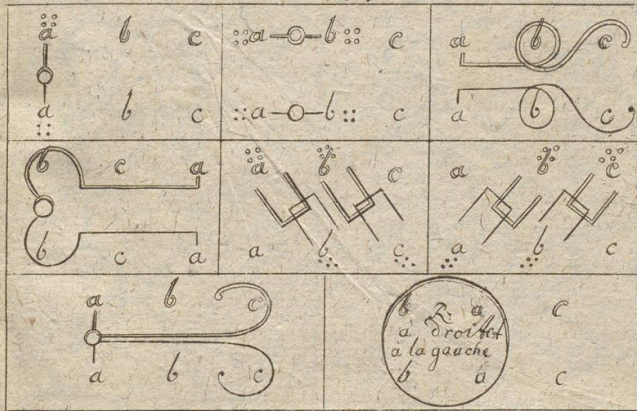 a b c
a b c
a b c
a b c
a b c
a b c
b c a
b c a
a b c
a b c
a b c
a b c
a b c
a b c
b a c
à droit et
à la gauche
b a c